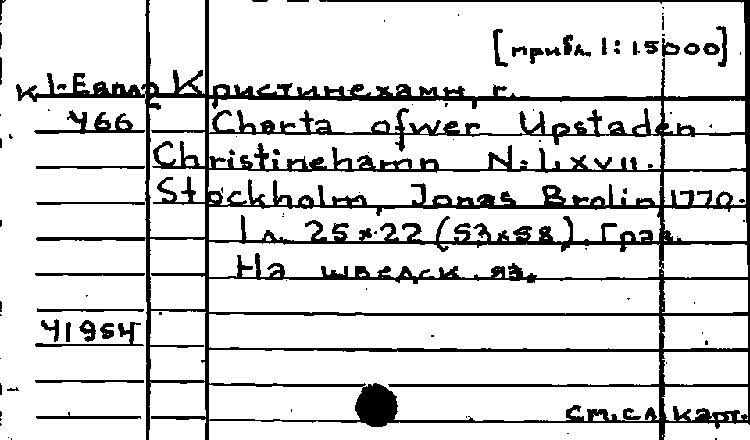 [прибл. 1:15000]
К 1-Евпл Кристинехамн, г.
466 Charta ofwer Upstaden
Christinehamn N:LXVII.
Stockholm, Jonas Brolin, 1770.
1 л. 25×22 (53×58). Грав.
На шведск. яз.
41954
см. сл. карт.